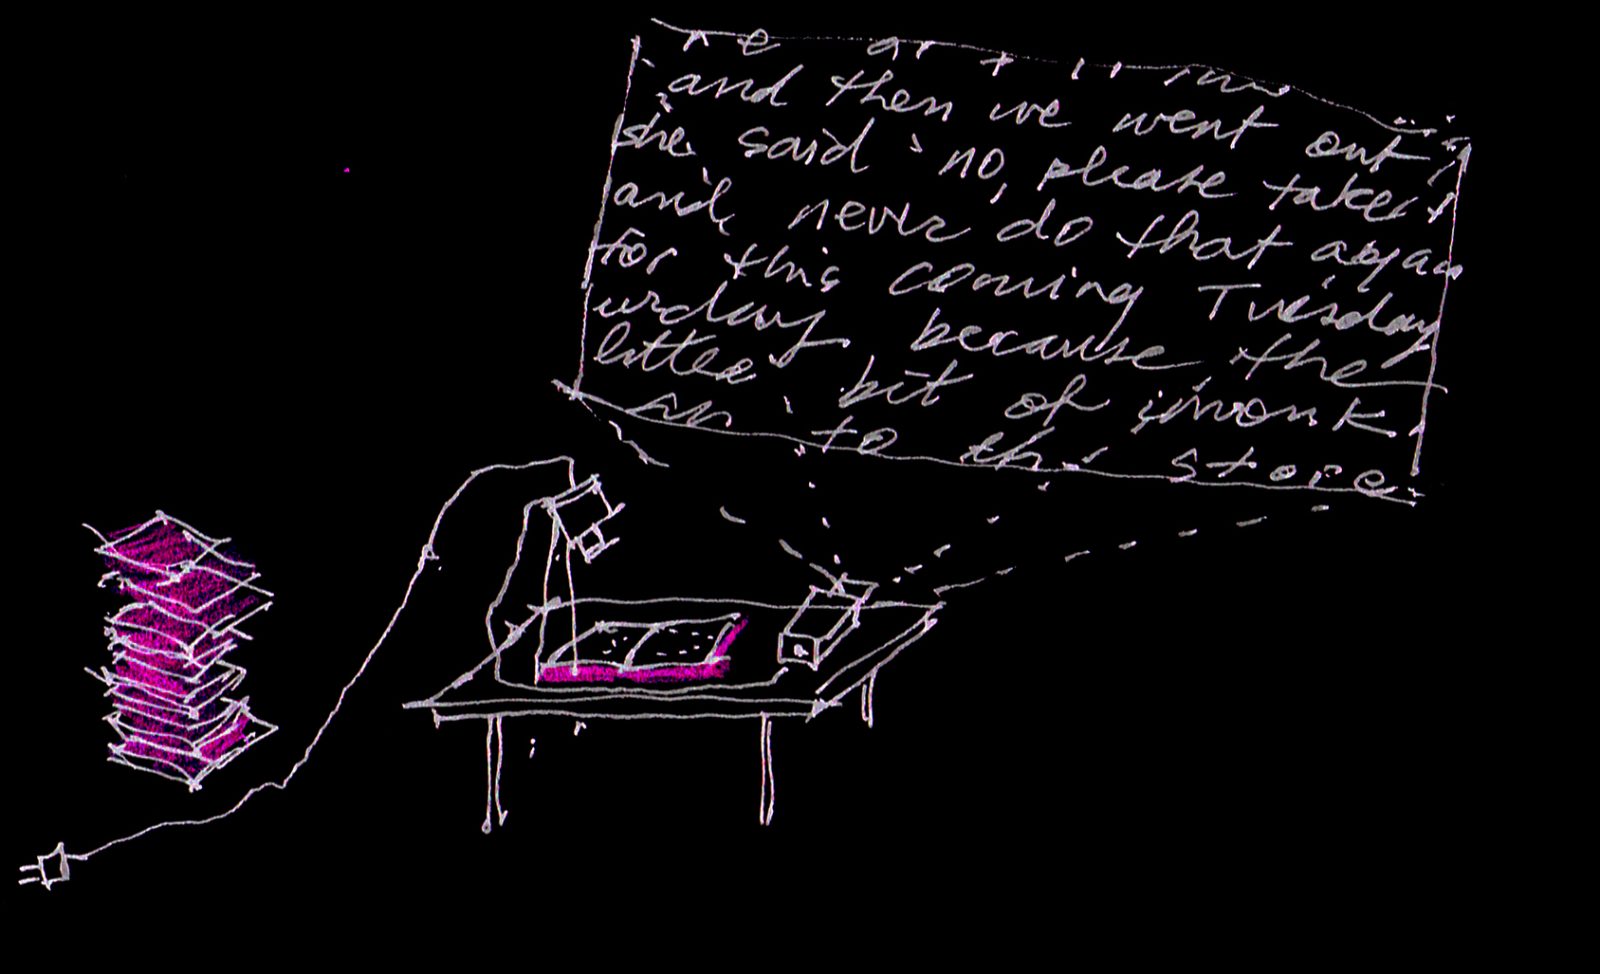 and then we went out
she said "no, please take
and never do that again
for this coming Tuesday
urday because the
little bit of work
to the store